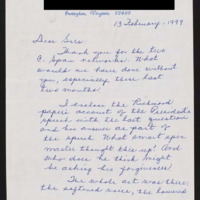 13 February - 1999
Dear Sirs:
Thank you for the two
C. Span networks. What
would we have done without
you, especially these last
two months!
I enclose the Richmond
papers account of the President's
speech with the last question
and his answer as part of
the speech. What smart spin
master thought this up? And
who does he think might
be asking his forgiveness?
The whole act was there;
the softened voice, the bowed